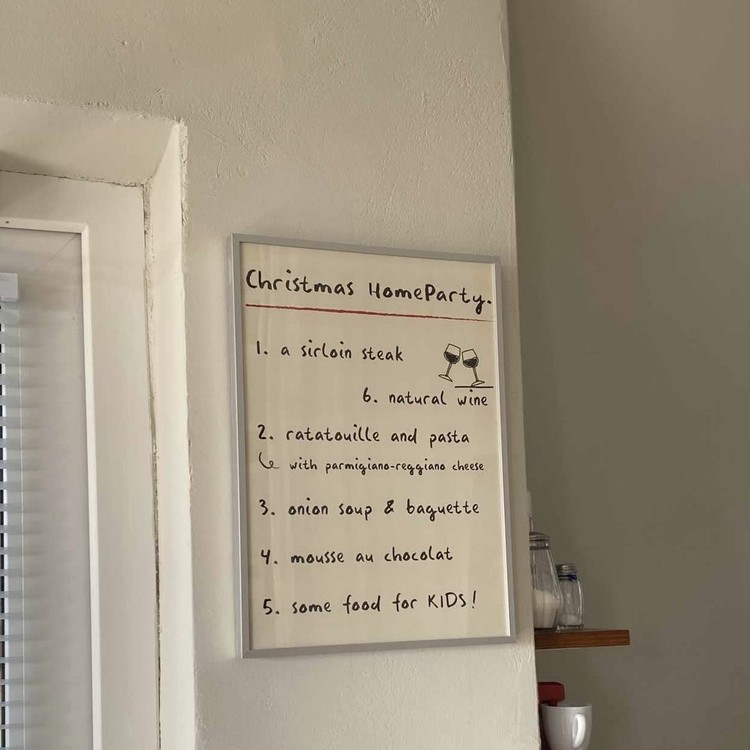 Christmas HomeParty.
1. a sirloin steak
6. natural wine
2. ratatouille and pasta
with parmigiano-reggiano cheese
3. onion soup & baguette
4. mousse au chocolat
5. some food for KIDS!